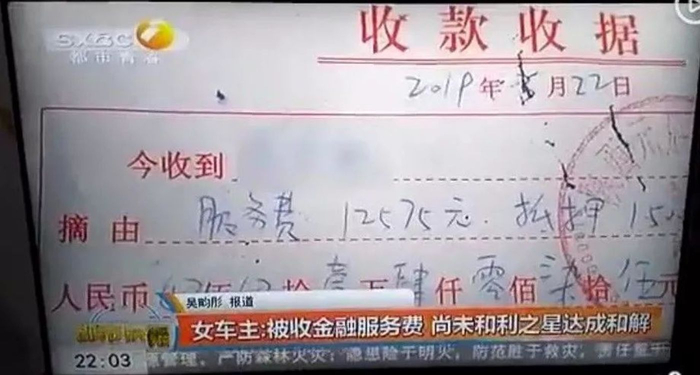 SXBC
都市青春
收款收据
2019年 月22日
今收到
摘由 服务费 12575元. 抵押 150
人民币 拾壹万肆仟零佰柒拾伍元
吴昀彤 报道
女车主:被收金融服务费 尚未和利之星达成和解
22:03
源管理，严防森林火灾；隐患险于明火，防范胜于救灾，责任重于